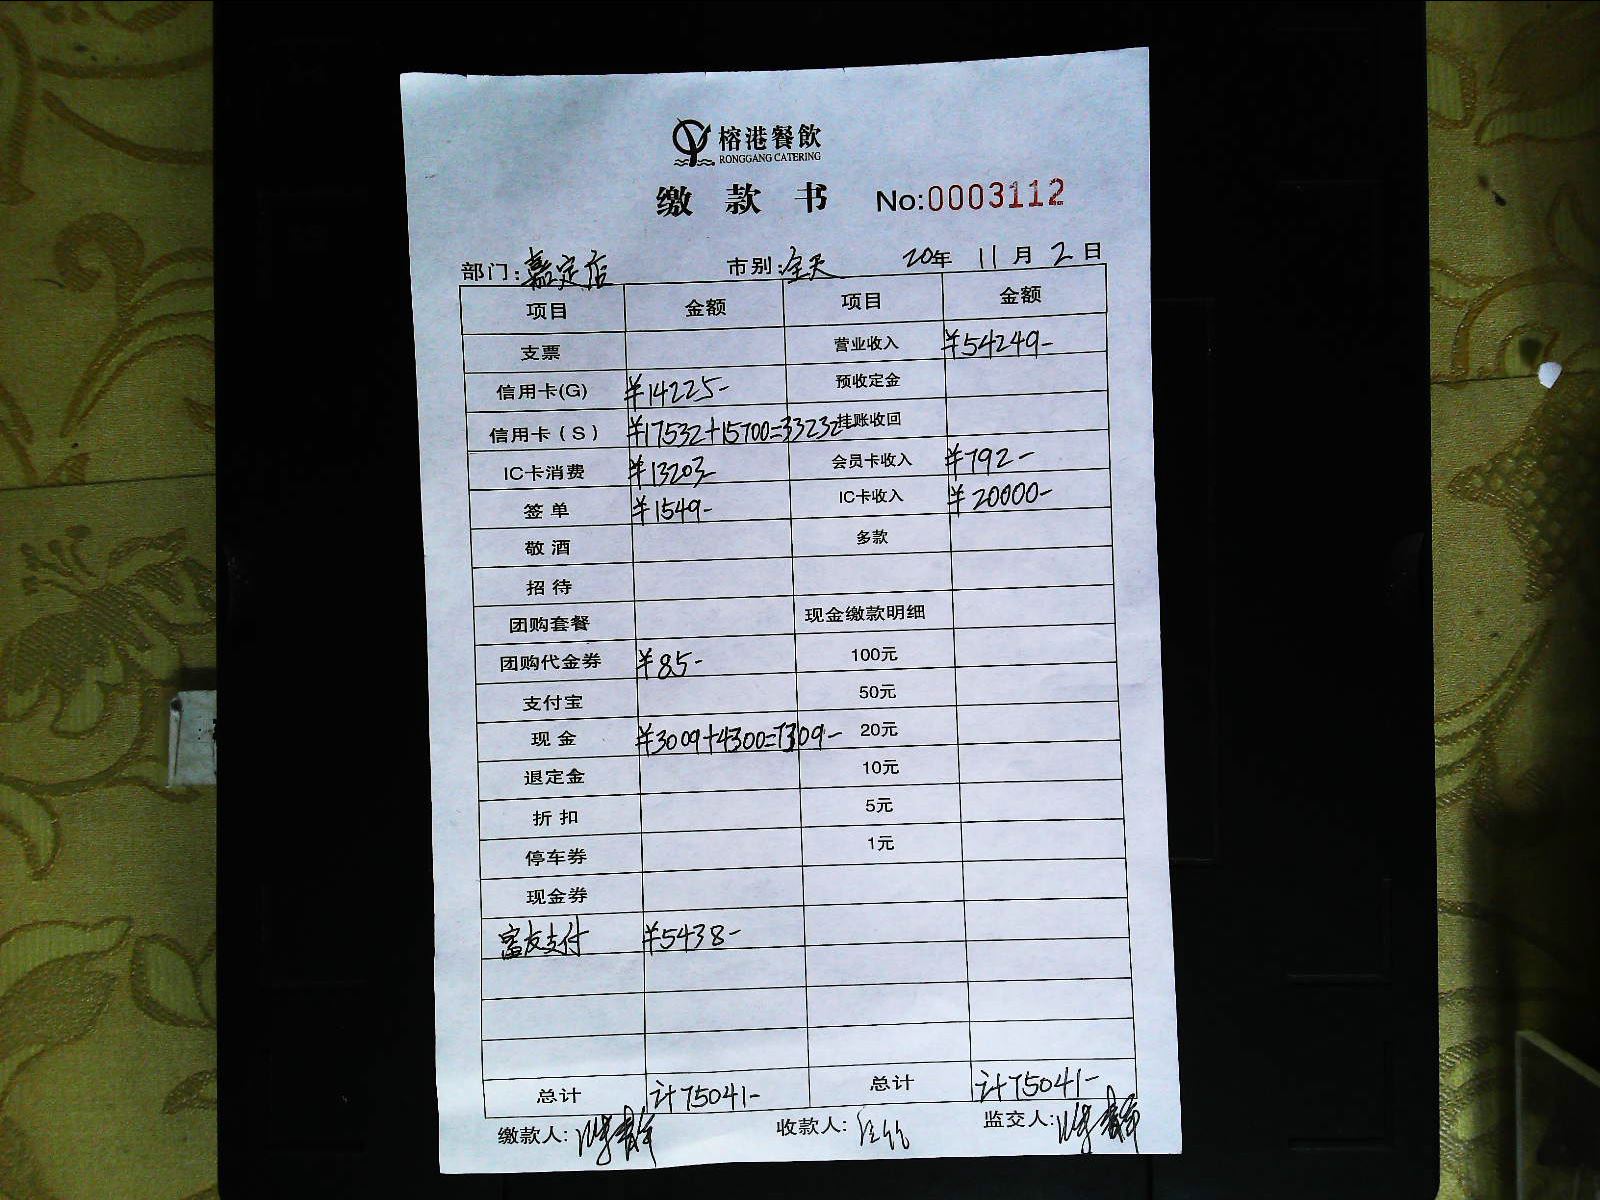 榕港餐飲
RONGGANG CATERING
缴款书 No:0003112
部门:嘉定店 市别:全天 20年 11月 2日
项目 金额 项目 金额
支票 营业收入 ¥54249-
信用卡(G) ¥14225- 预收定金
信用卡(S) ¥17532+15700=33232- 挂账收回
IC卡消费 ¥13203- 会员卡收入 ¥792-
签单 ¥1549- IC卡收入 ¥20000-
敬酒 多款
招待
团购套餐 现金缴款明细
团购代金券 ¥85- 100元
支付宝 50元
现金 ¥3009+4300=7309- 20元
退定金 10元
折扣 5元
停车券 1元
现金券
富友支付 ¥5438-
总计 计75041- 总计 计75041-
缴款人: 收款人: 监交人: